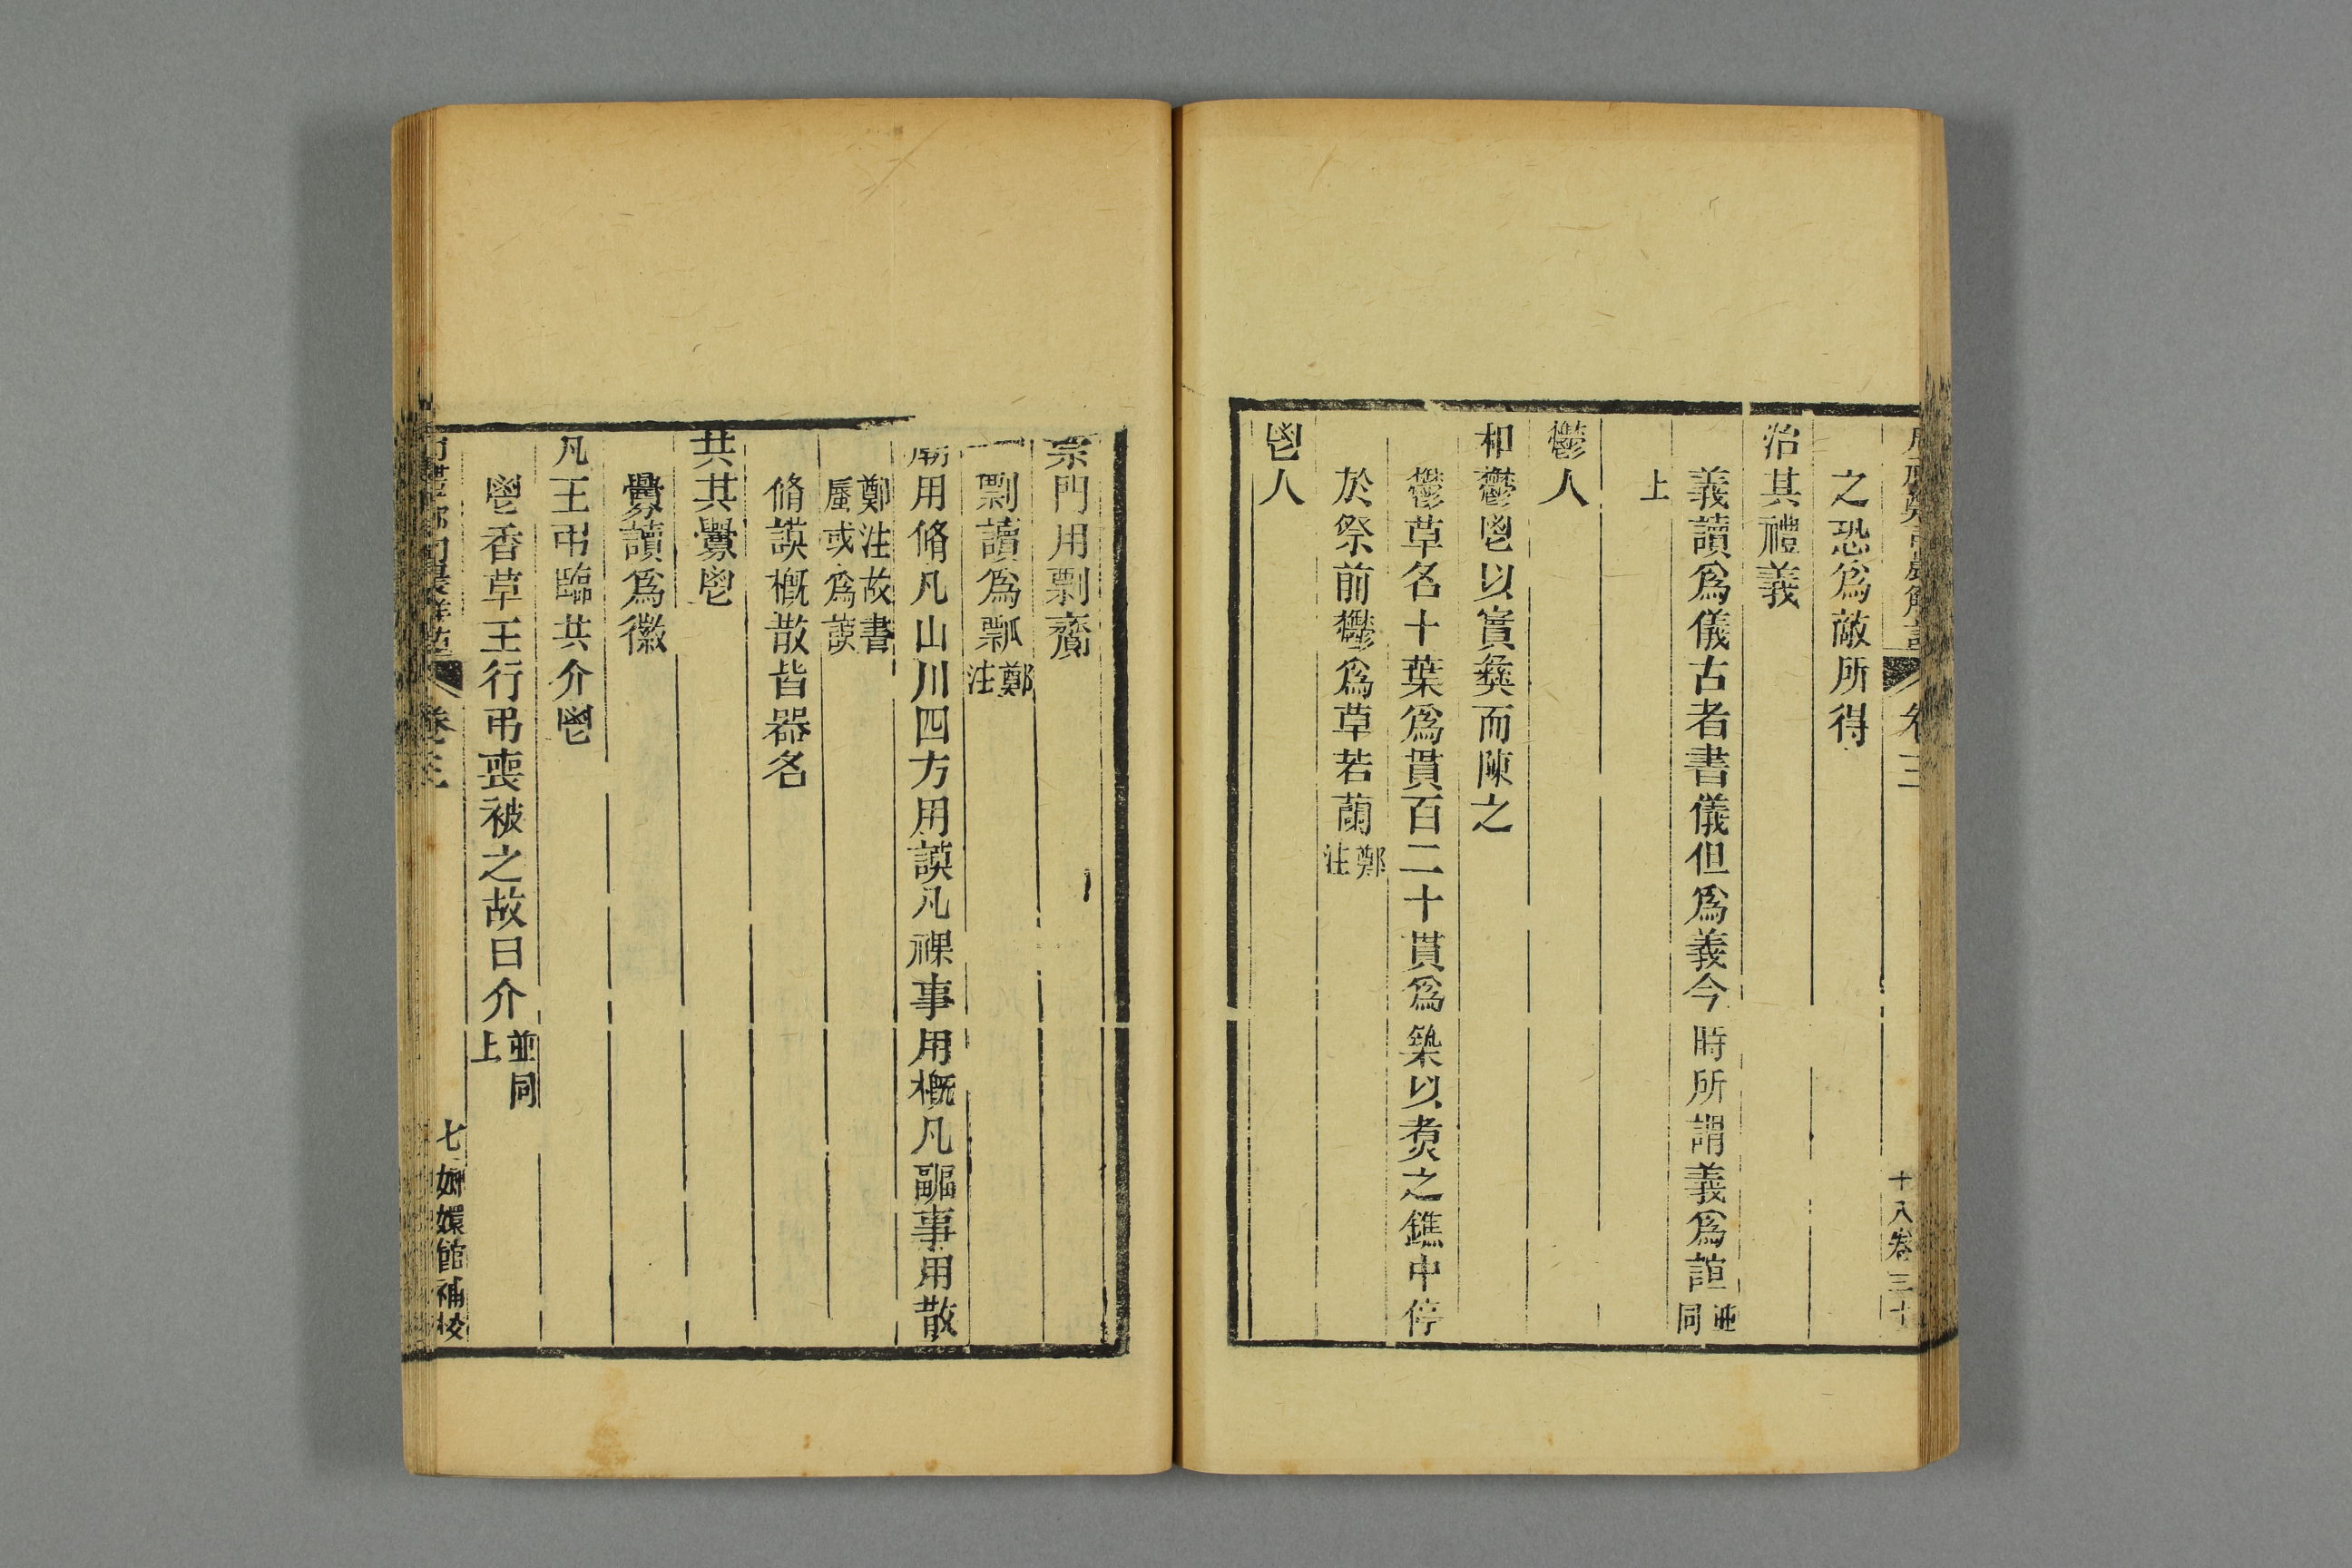 之恐爲敵所得
治其禮義
義讀爲儀古者書儀但爲義今時所謂義爲誼並同
上
鬱人
和鬱鬯以實彝而陳之
鬱草名十葉爲貫百二十貫爲築以煑之鐎中停
於祭前鬱爲草若蘭鄭注
鬯人
宗門用剽齎
剽讀爲瓢鄭注
廟用脩凡山川四方用謨凡祼事用概凡副事用散
鄭注故書
蜃或爲謨
脩謨概散皆器名
共其釁鬯
釁讀爲徽
凡王弔臨共介鬯
鬯香草王行弔喪被之故曰介並同上
卷三
七嫏嬛館補校